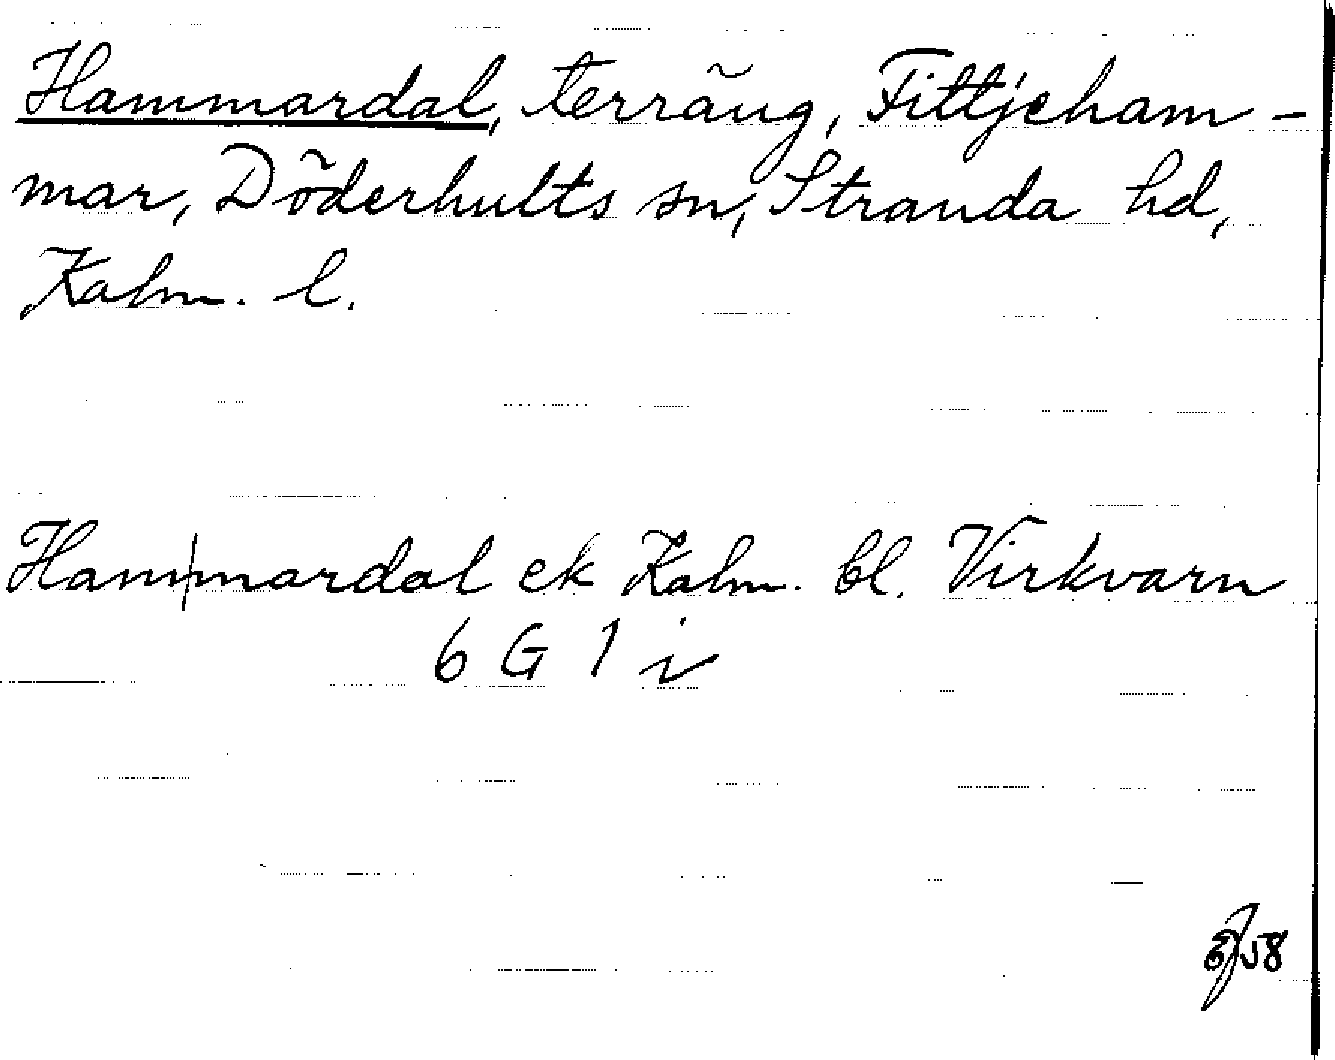 Hammardal, terräng, Fittjeham-
mar, Döderhults sn, Stranda hd,
Kalm. l.
Ham|mardal ek Kalm. bl. Virkvarn
6 G 1 i
58